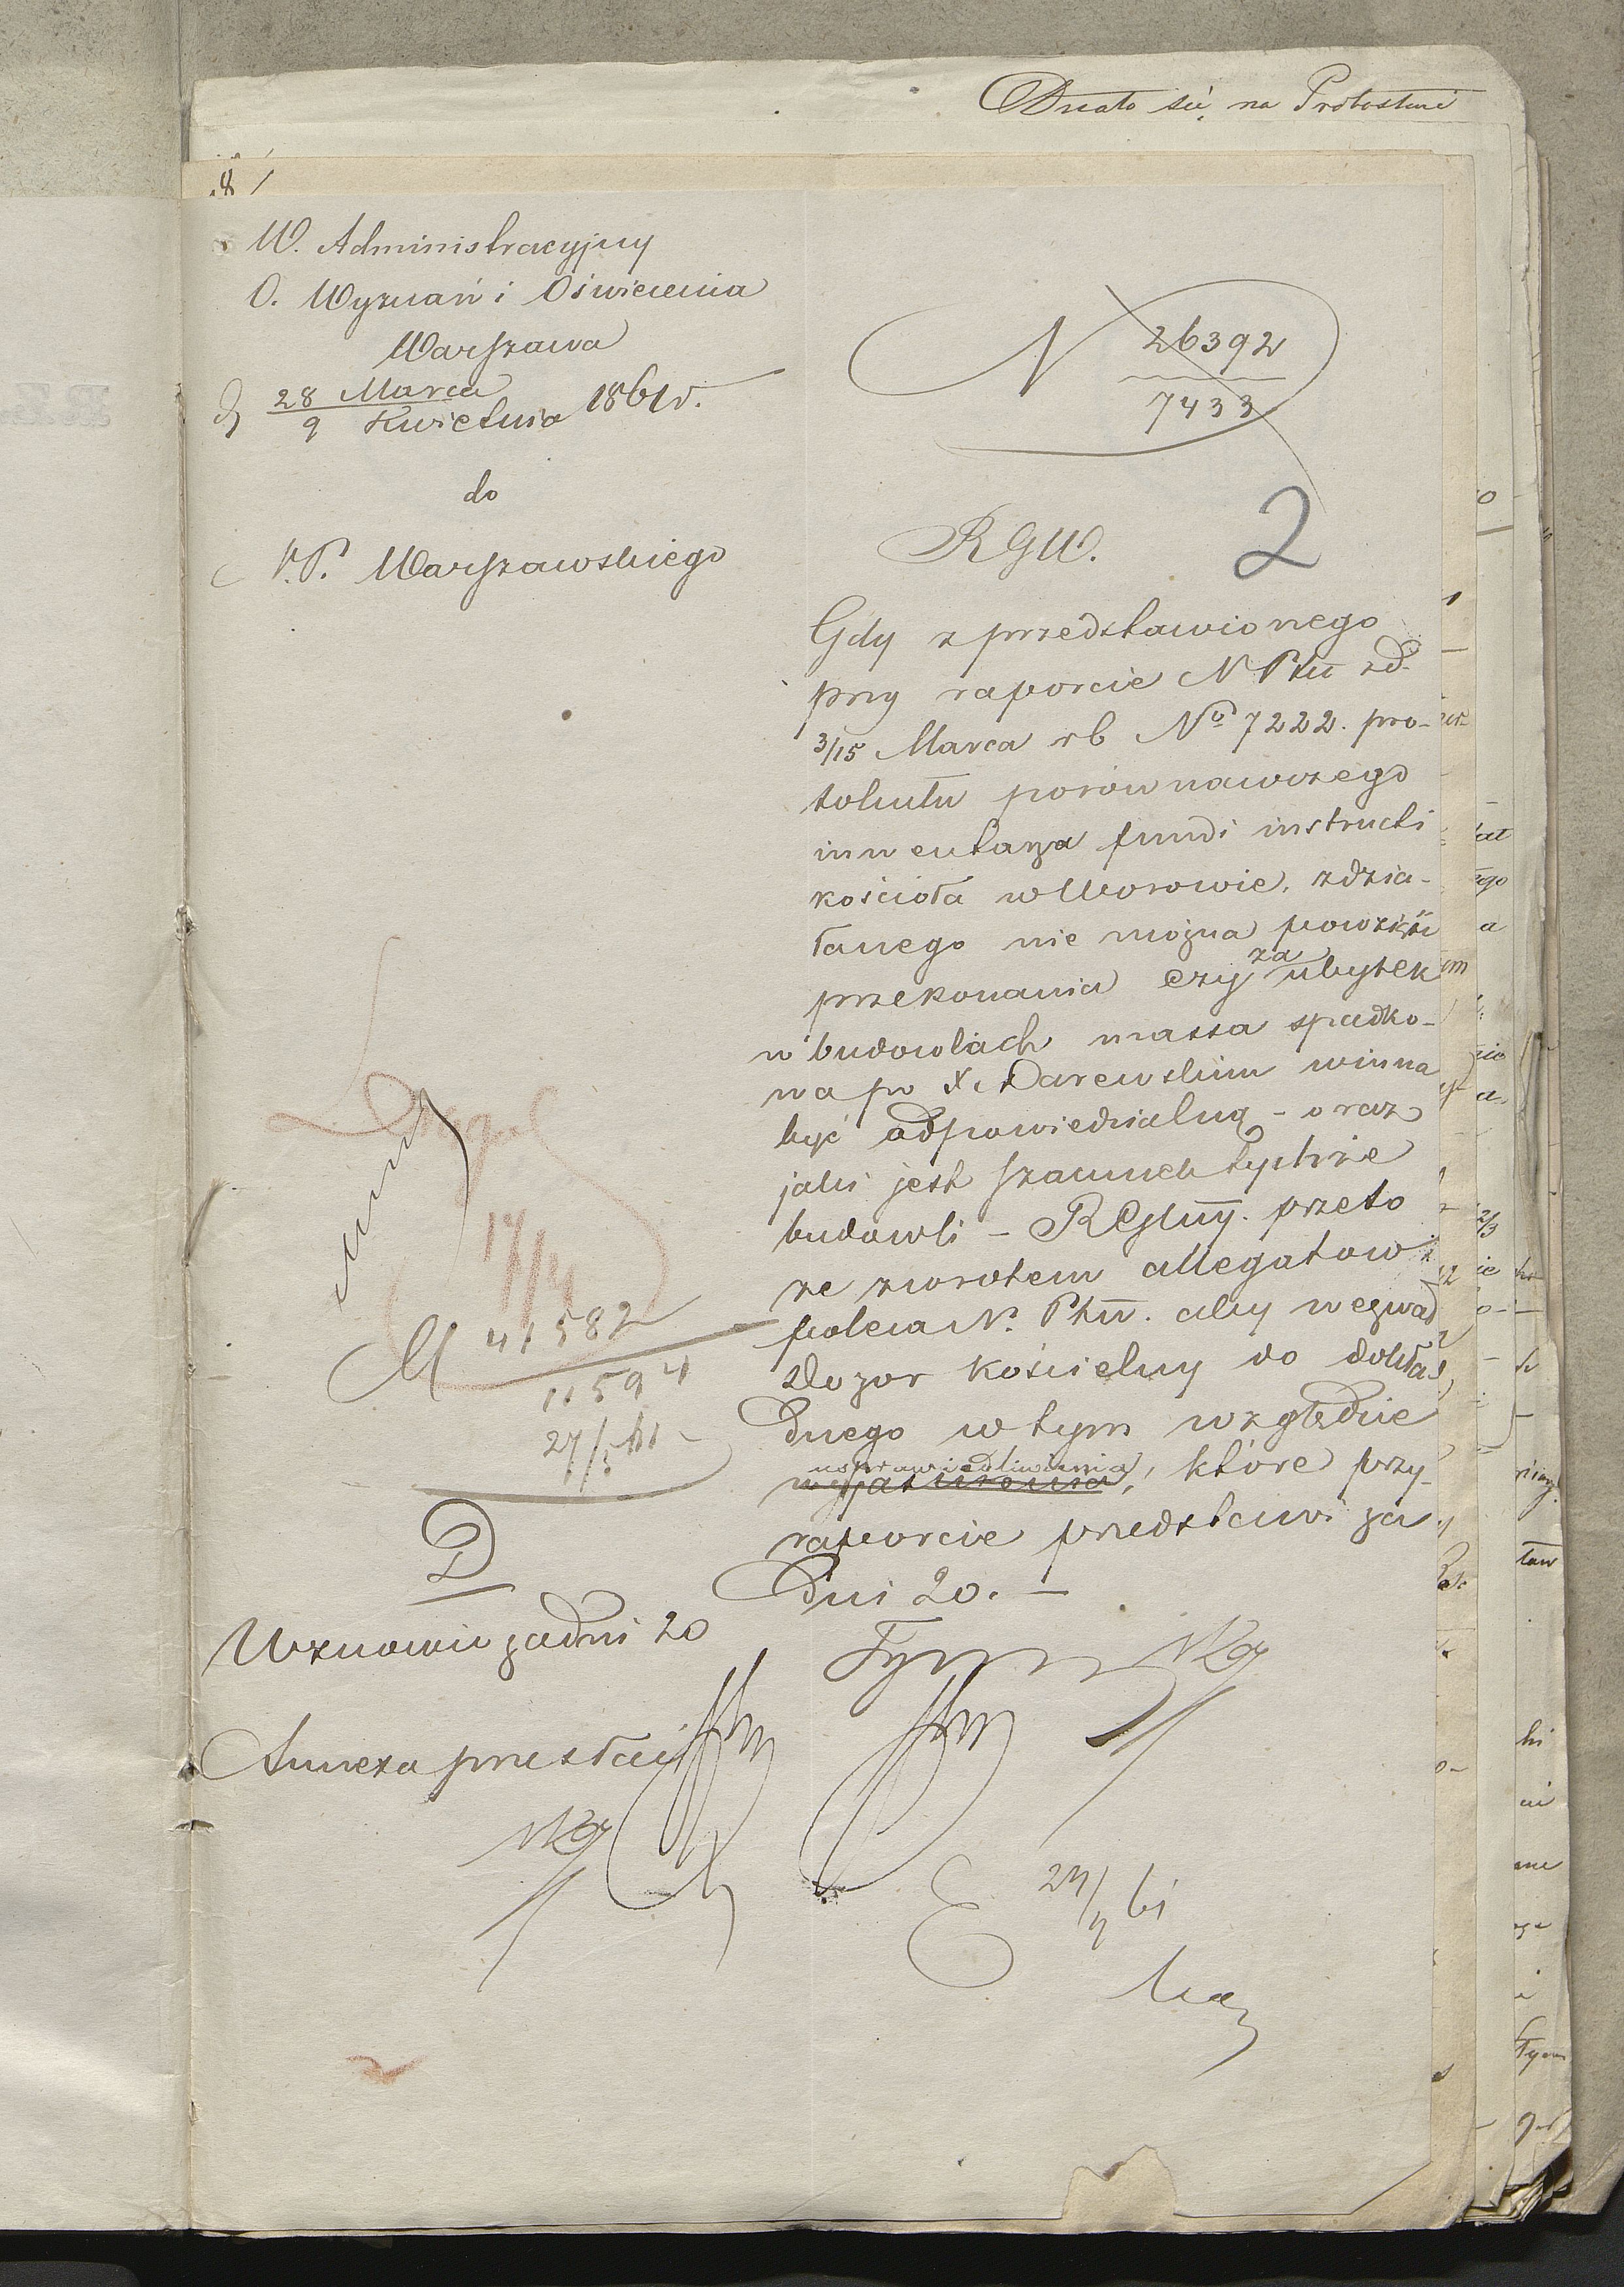 się na
W. Administracyjny
O. Wyznań i Oświecenia
Warszawa
d 28 Marca / 9 Kwietnia 1861 r.
do
N.P. Warszawskiego
N 26392 / 7433
RGW. 2
Gdy z przedstawionego
przy raporcie N Ptu zd.
3/15 Marca rb No 7222. pro-
tokułu porównawczego
inwentarza fundi instructi
kościoła w Worowie, zdzia-
łanego nie można powziąść
przekonania czy za ubytek
w budowlach massa spadko-
wa po X. Darewskim winna
być odpowiedzialną - oraz
jaki jest szacunek tychże
budowli - RGlny. przeto
ze zwrotem allegatow
poleca N. Ptu. aby wezwał
dozor kościelny do dokła-
dnego w tym względzie
usprawiedliwienia, które przy
raporcie przedstawi za
Dni 20. -
17/4
41582
11594
27/5 61
D
Wznowić za dni 20
Annexa przesłać
24/4 61